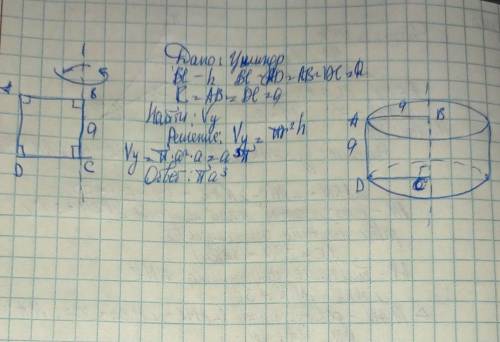 Дано: Цилиндр
BC - h BC=AD=AB=DC=a
R = AB = DC = a
Найти: Vу
Решение: Vу = πr²h
Vу = π·a²·a = a³π
Ответ: πa³
A
B
a
D
C
A
a
B
a
D
C